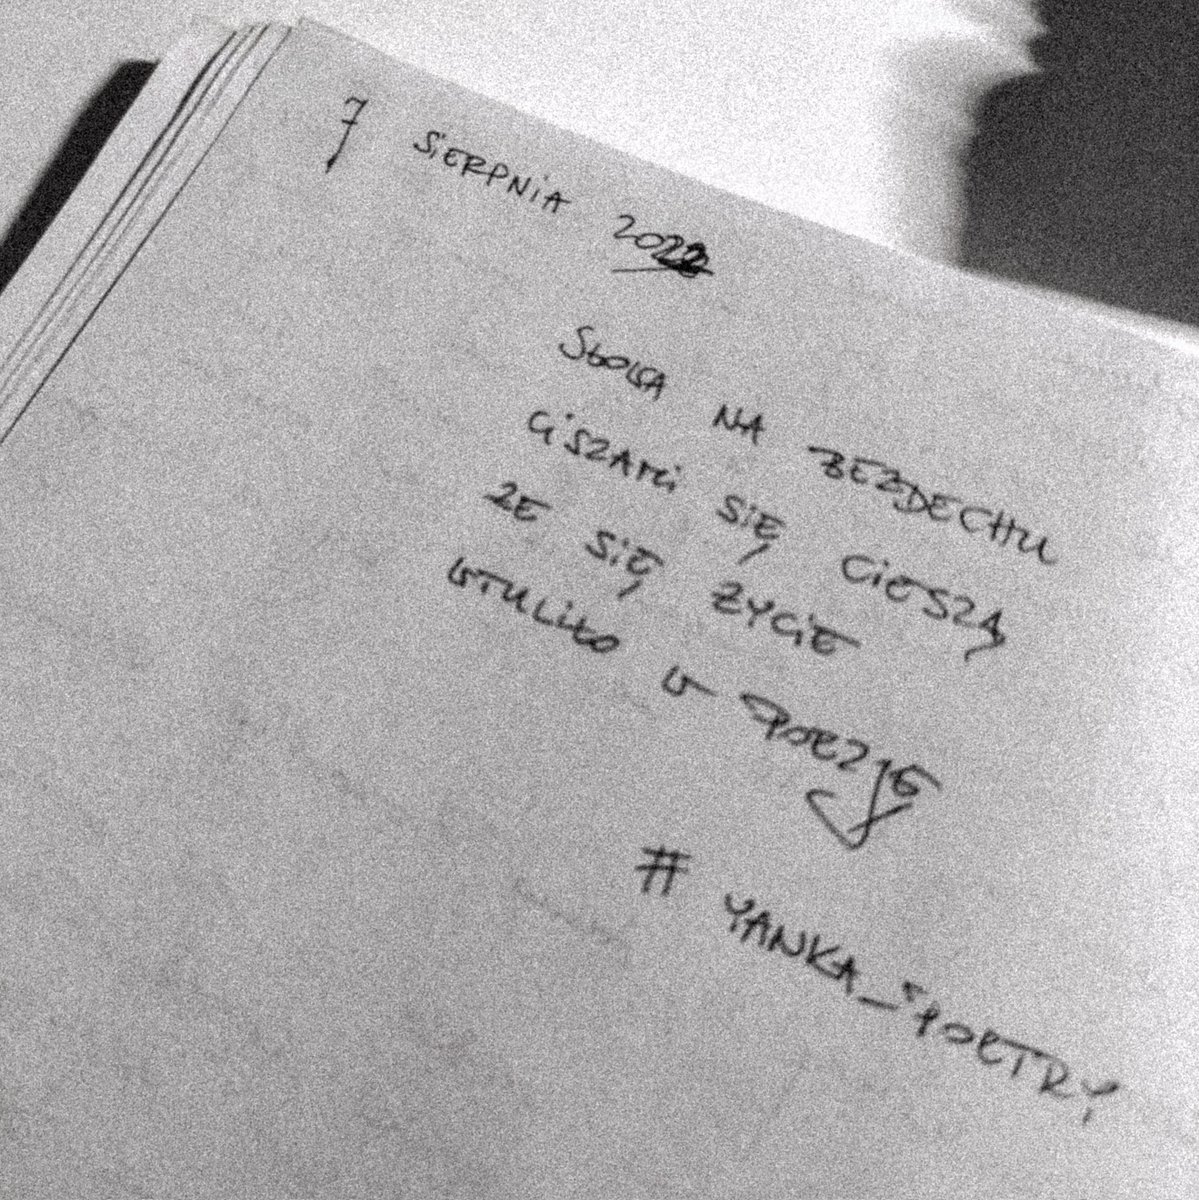 7 SiERPNiA 2022
Słowa NA BEZDECHU
CiSZAMi SiĘ CiESZĄ
ŻE SiĘ ŻYCiE
WTULiŁO W POEZJĘ
# YANKA_POETRY